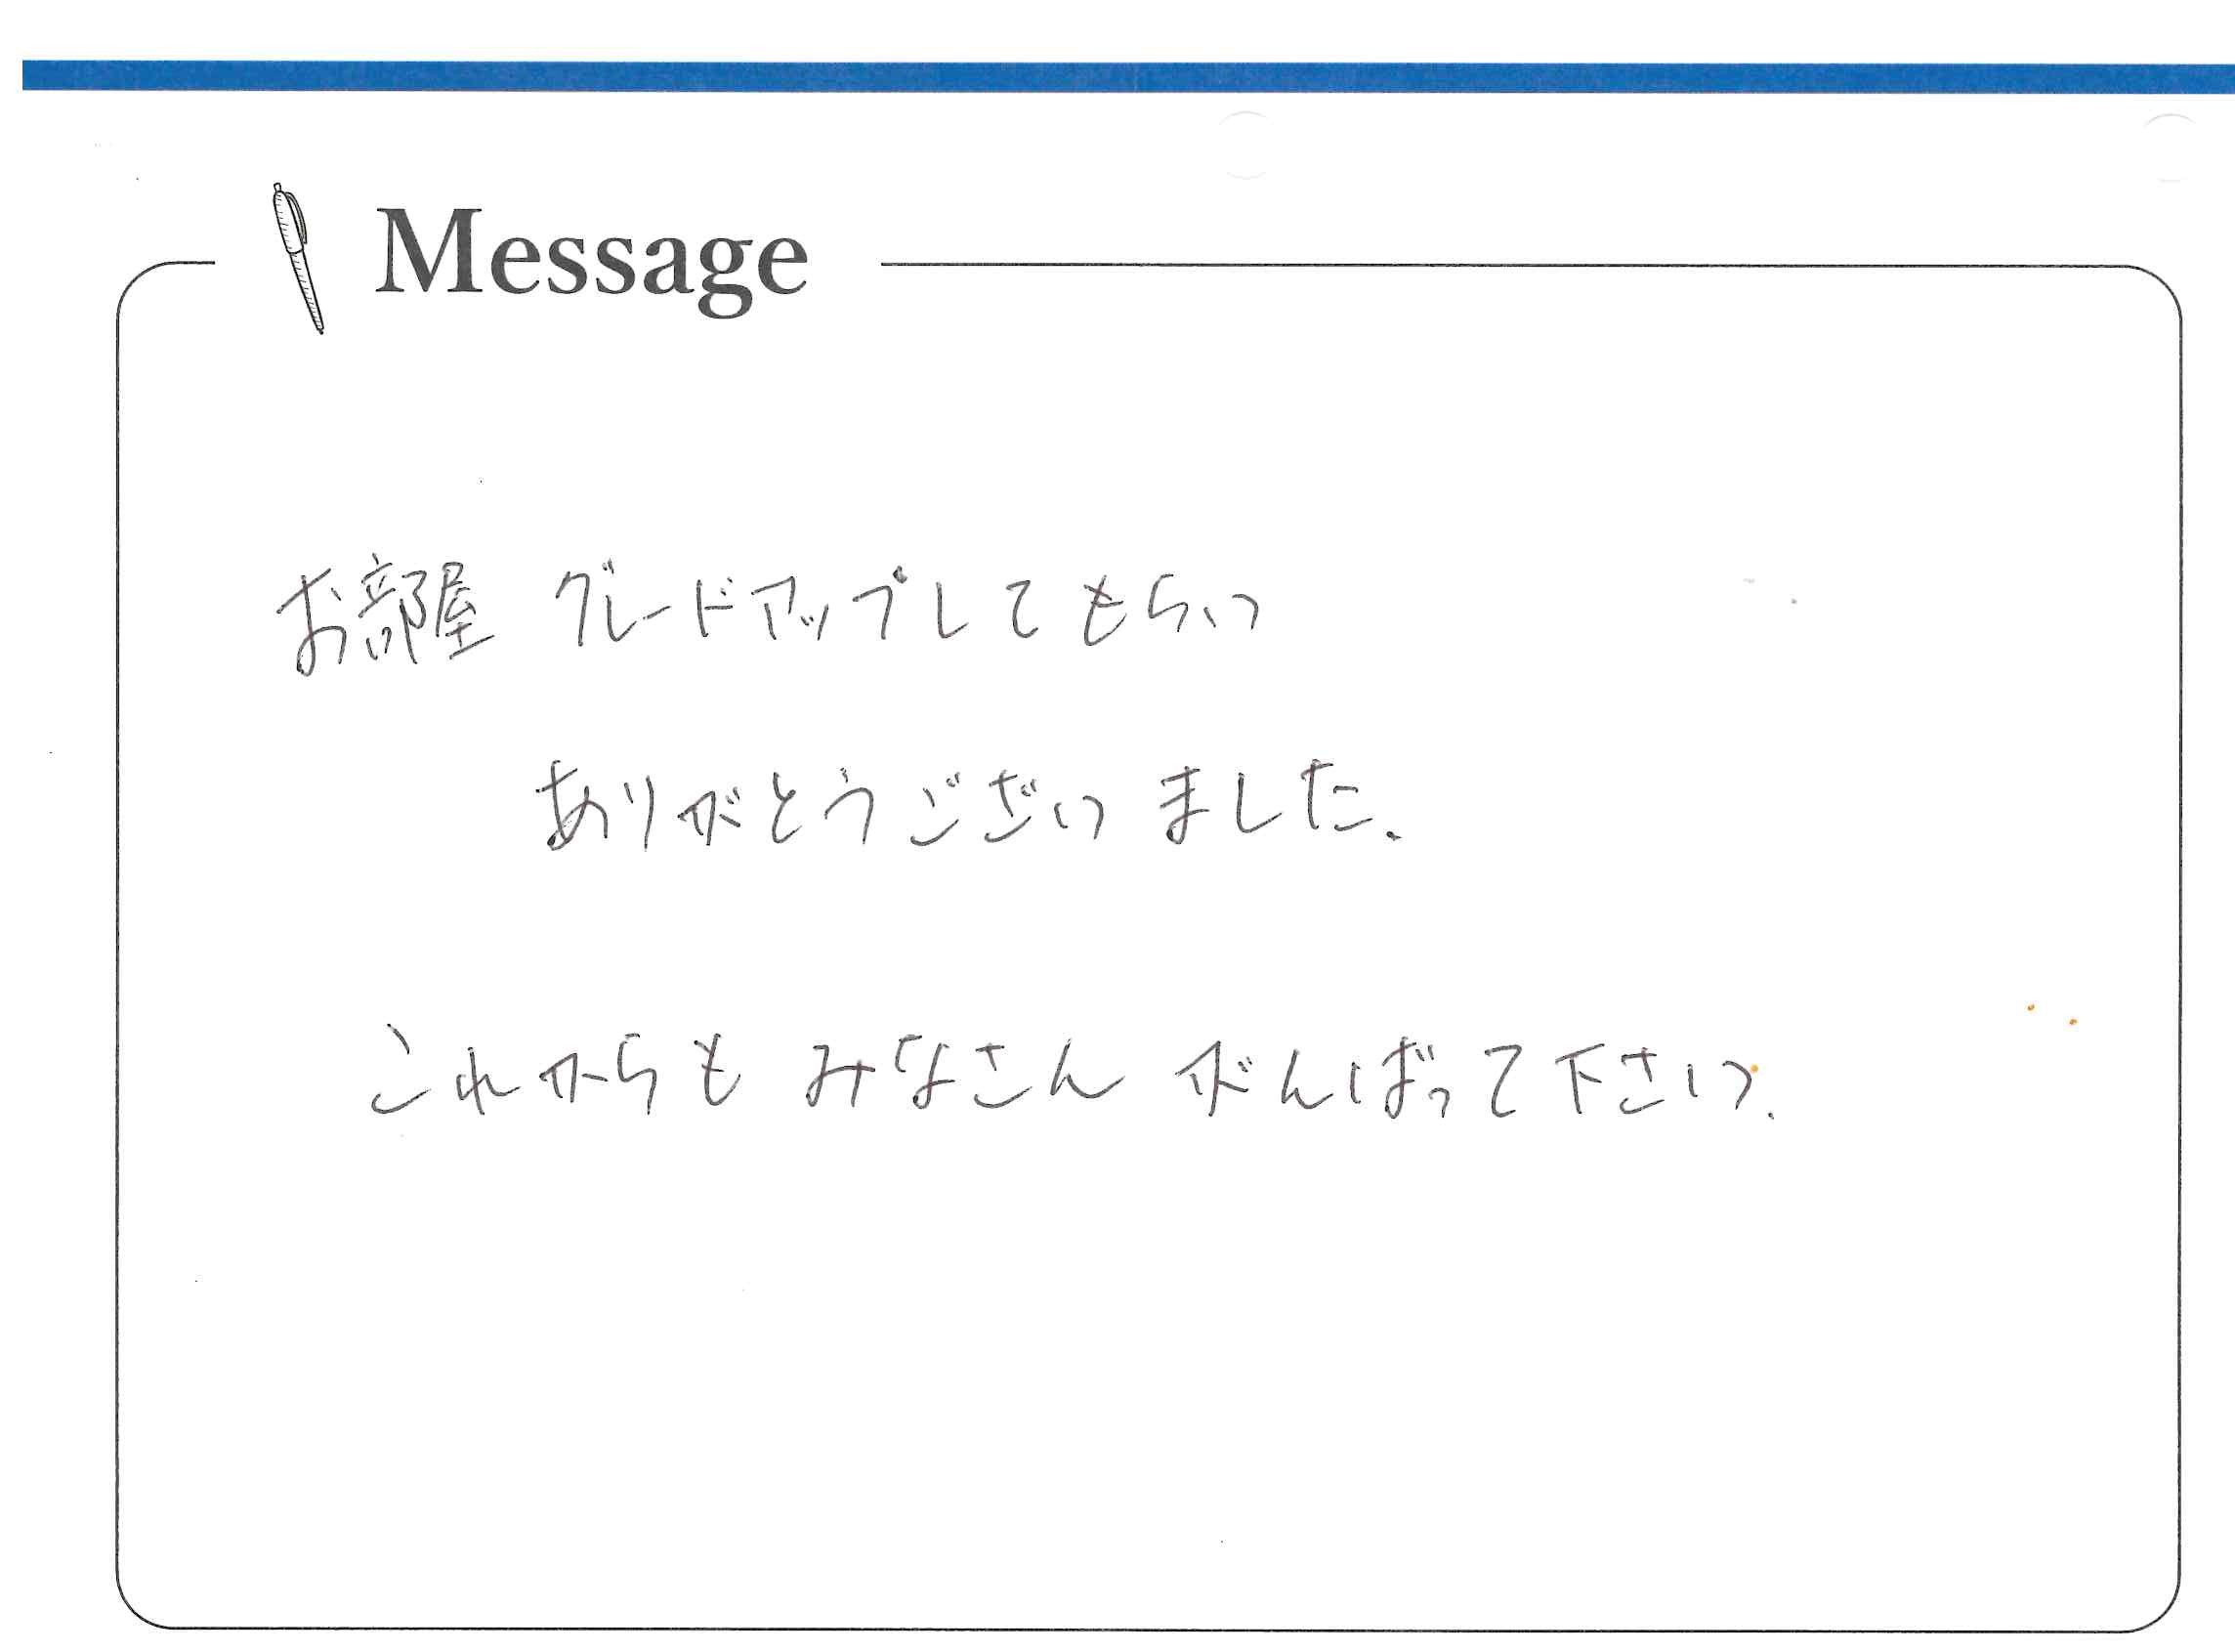 Message
お部屋 グレードアップしてもらい
ありがとうございました.
これからも みなさん がんばって下さい.